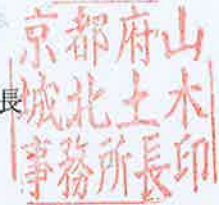 長
京都府山
城北土木
事務所長印